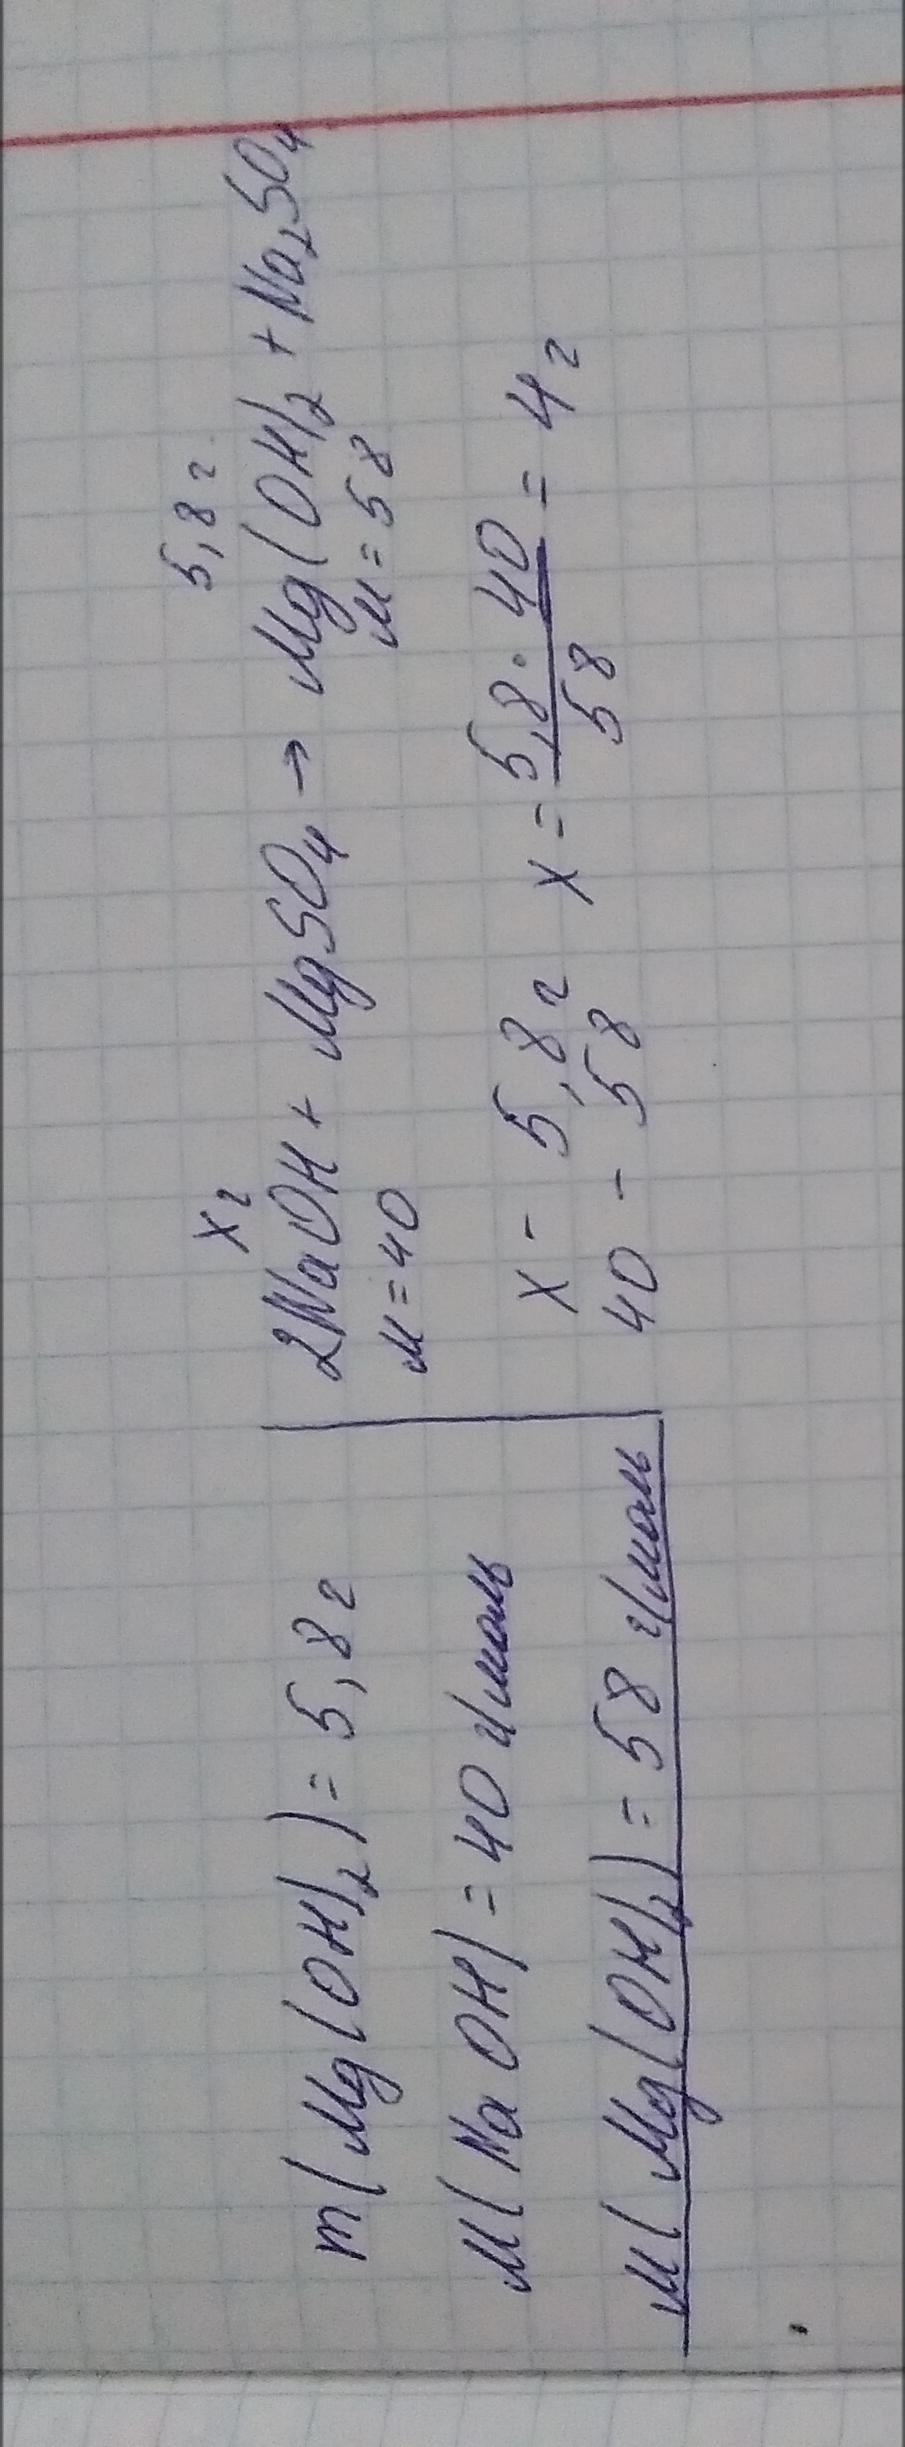 m(Mg(OH)₂) = 5,8 г
M(NaOH) = 40 г/моль
M(Mg(OH)₂) = 58 г/моль
x г 5,8 г
2NaOH + MgSO₄ → Mg(OH)₂ + Na₂SO₄
M = 40 M = 58
x - 5,8 г x = 5,8 · 40 / 58 = 4 г
40 - 58